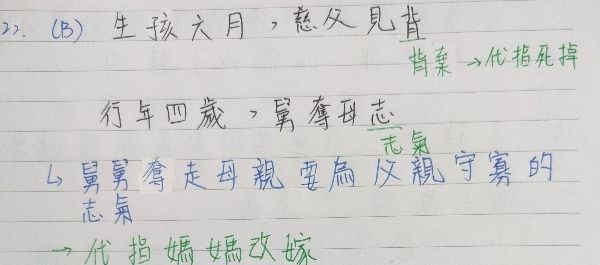 22. (B) 生孩六月，慈父見背
背棄→代指死掉
行年四歲，舅奪母志
志氣
↳ 舅舅奪走母親要為父親守寡的
志氣
→代指媽媽改嫁